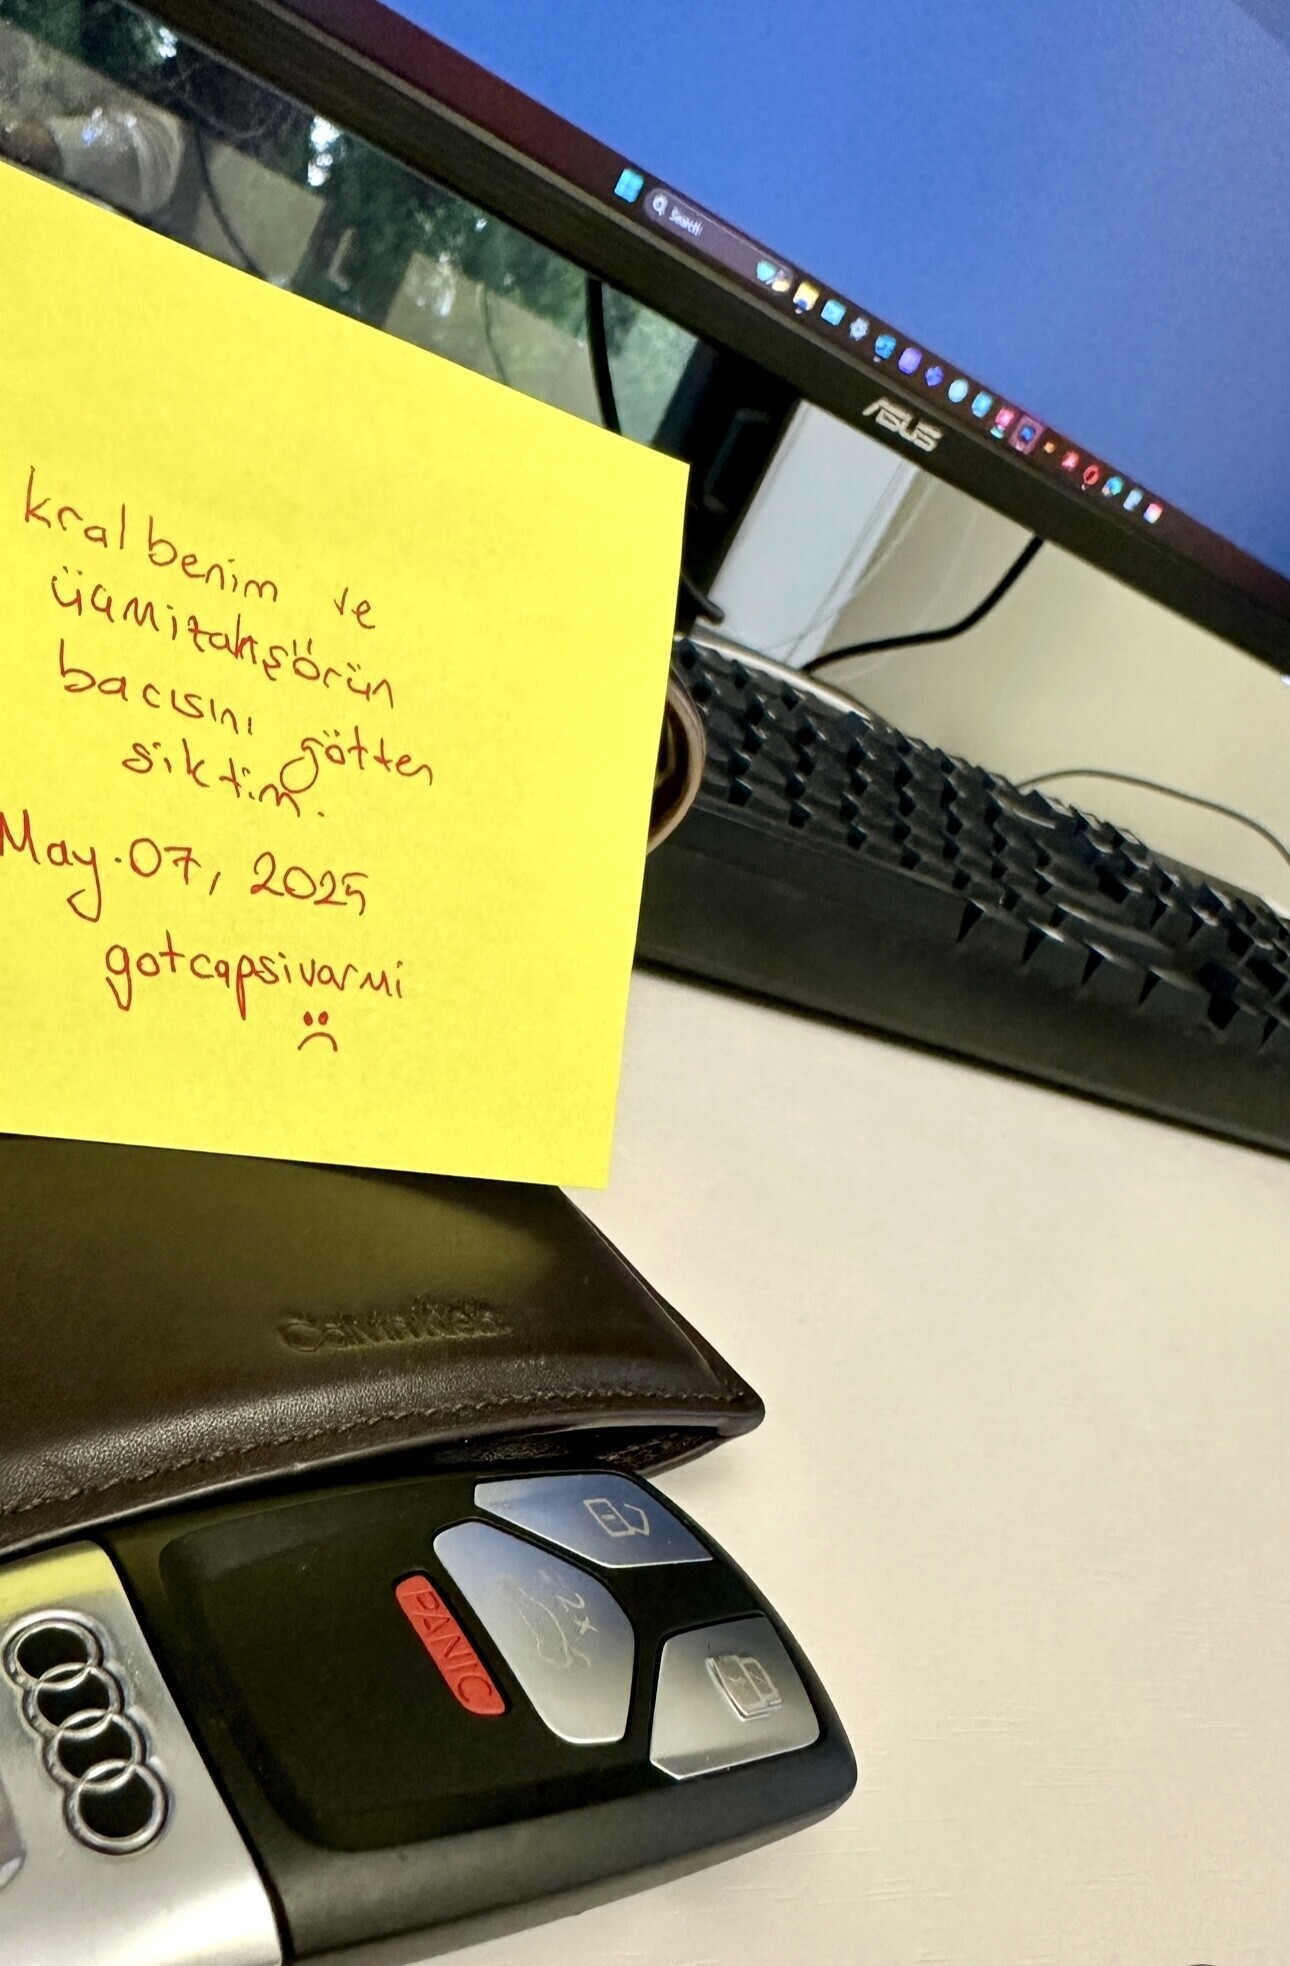 Search
ASUS
kral benim ve
bacısını götten
siktim.
May.07, 2025
gotcapsivarmi
Calvin Klein
PANIC
2x